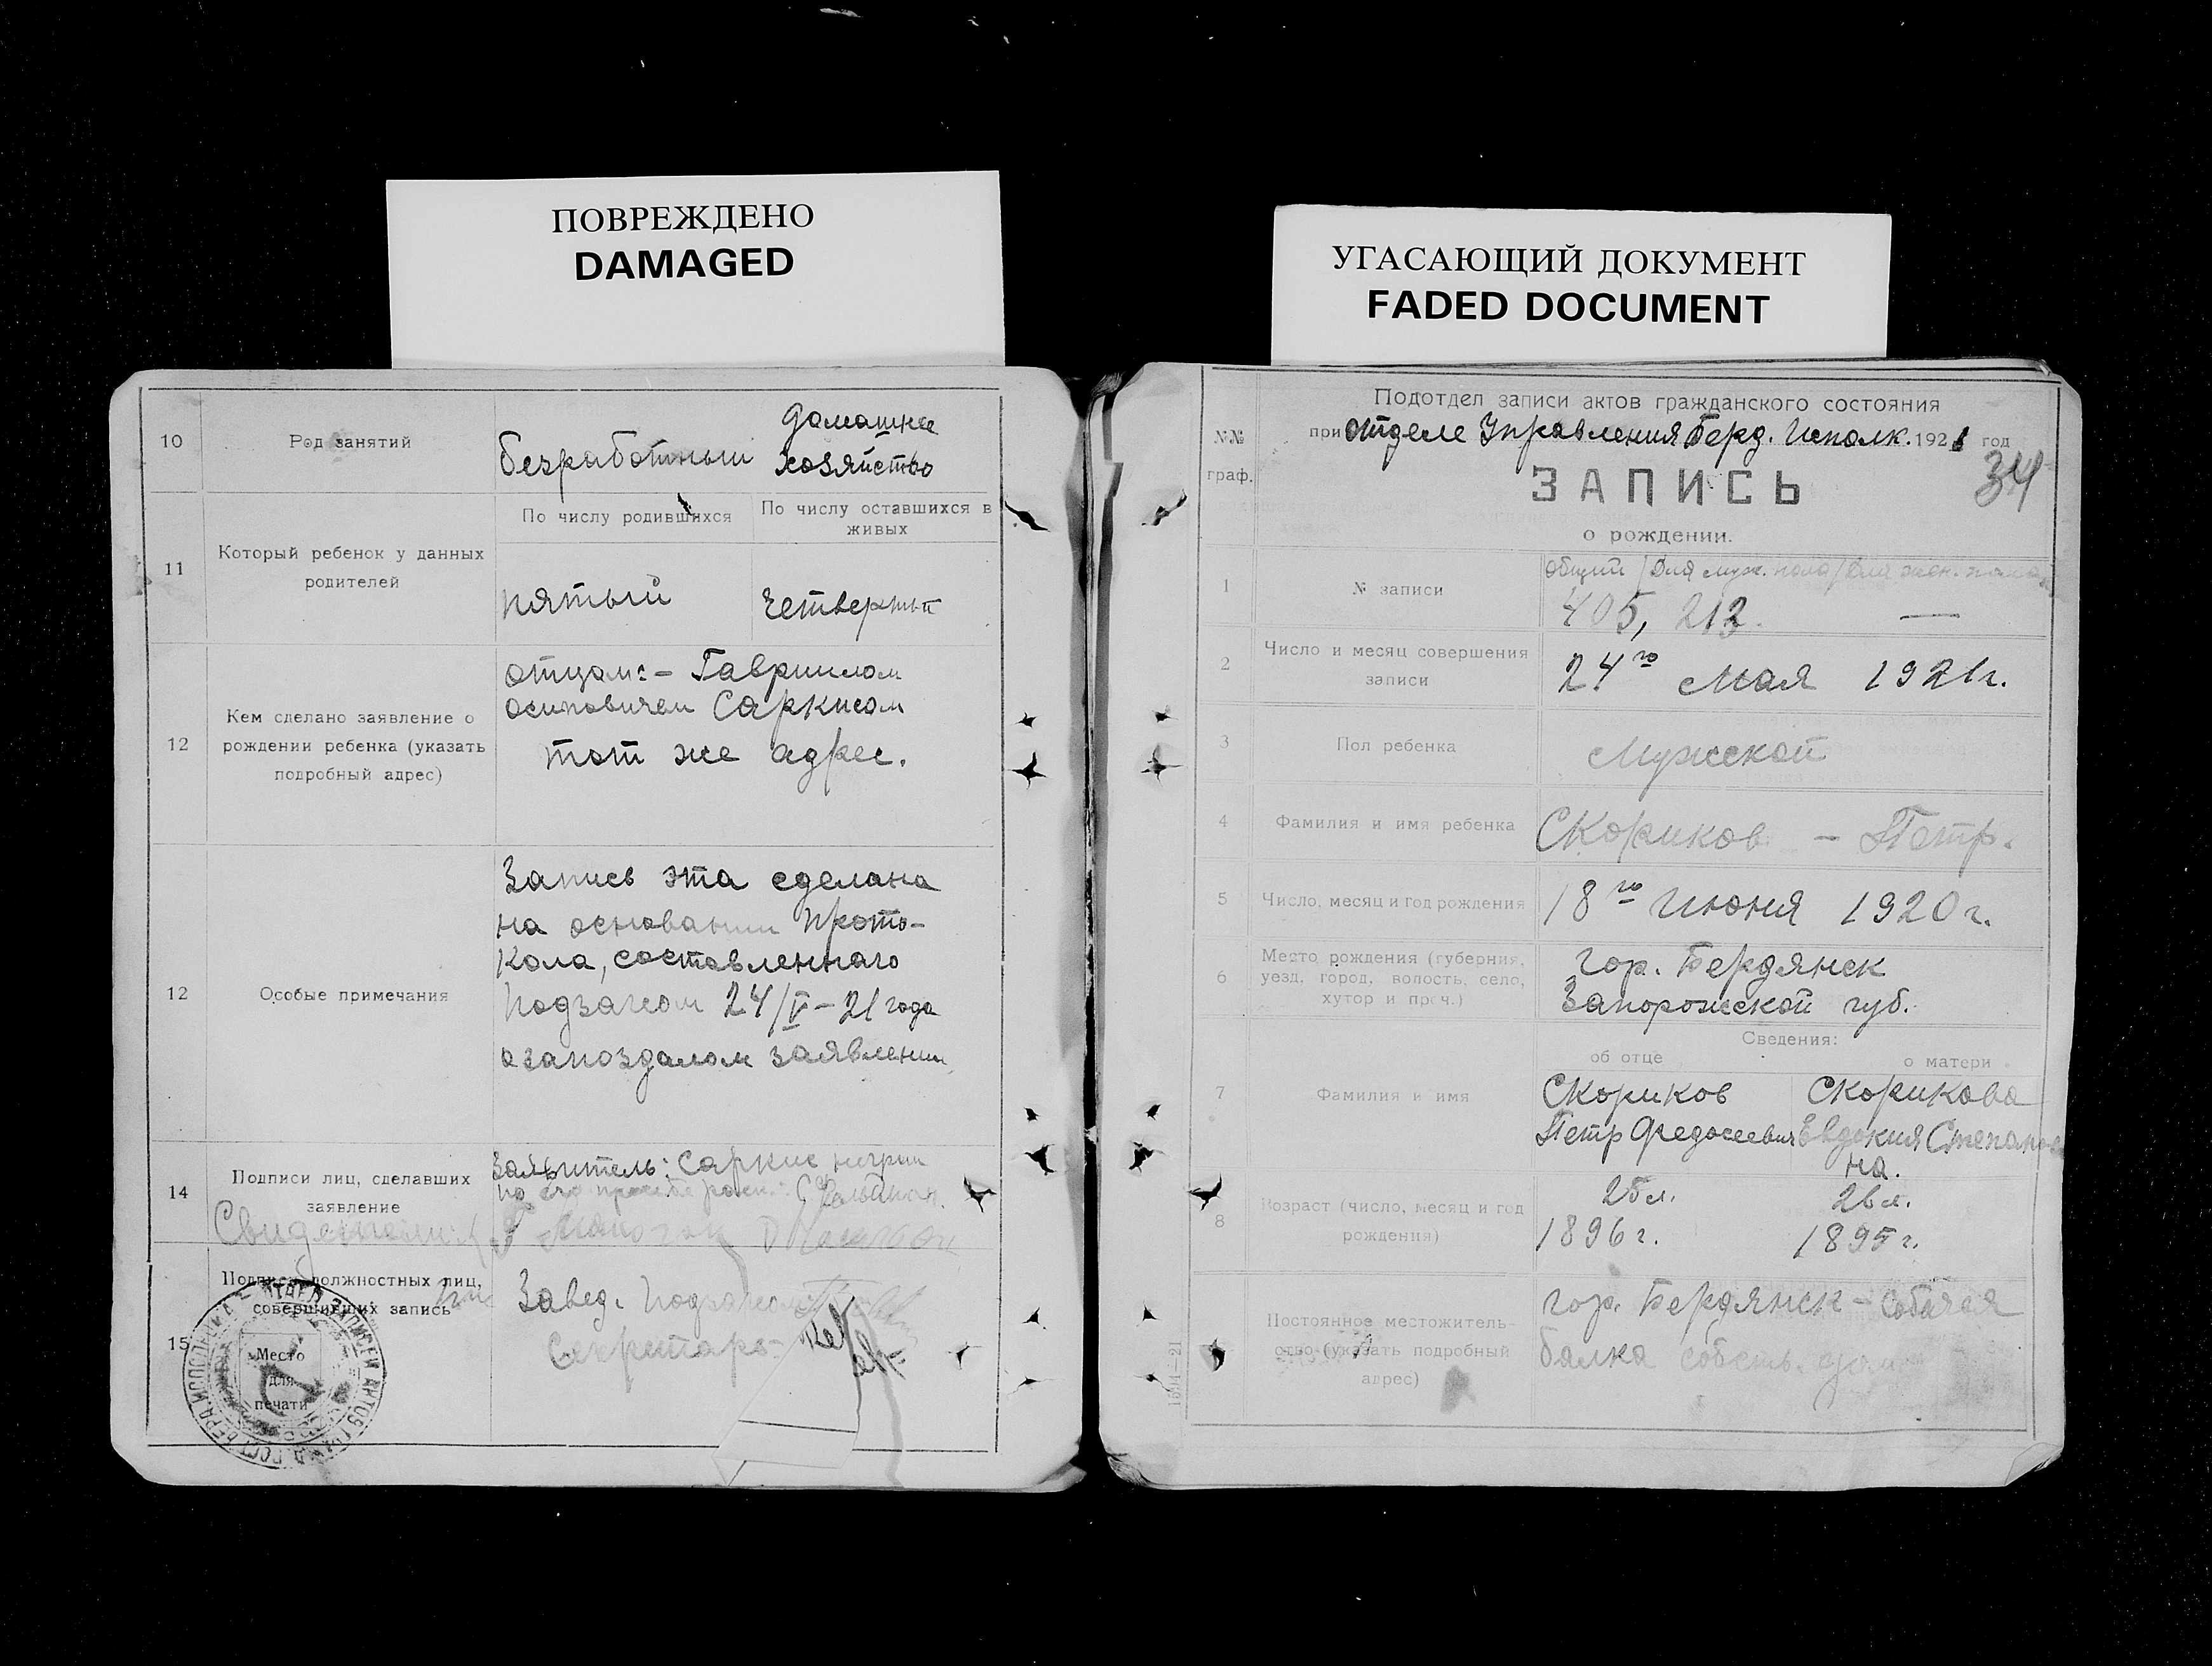 ПОВРЕЖДЕНО
DAMAGED
10
Род занятий
безработный
домашнее
хозяйство
11
Который ребенок у данных
родителей
По числу родившихся
По числу оставшихся в
живых
пятый
четвертый
12
Кем сделано заявление о
рождении ребенка (указать
подробный адрес)
отцом:- Гавриилом
Осиповичем Саркисом
тот же адрес.
12
Особые примечания
Запись эта сделана
на основании прото-
кола, составленнаго
Подзагсом 24/V-21 года
о запоздалом заявлении
14
Подписи лиц, сделавших
заявление
Заявитель: Саркис
по его просьбе
15
Подписи должностных лиц,
совершивших запись
Место
для
печати
Завед. Подзагсом
Секретарь
УГАСАЮЩИЙ ДОКУМЕНТ
FADED DOCUMENT
№№
граф.
Подотдел записи актов гражданского состояния
при Отделе Управления Берд. Исполк. 1921 год
34
ЗАПИСЬ
о рождении.
1
№ записи
общий / Для муж. пола / Для жен. пола
405, 212. —
2
Число и месяц совершения
записи
24го Мая 1921г.
3
Пол ребенка
Мужской
4
Фамилия и имя ребенка
Скориков - Петр.
5
Число, месяц и год рождения
18го Июня 1920г.
6
Место рождения (губерния,
уезд, город, волость, село,
хутор и проч.)
гор. Бердянск
Запорожской губ.
Сведения:
об отце
о матери
7
Фамилия и имя
Скориков
Петр Федосеевич
Скорикова
Евдокия Степанов
на.
8
Возраст (число, месяц и год
рождения)
25л.
1896г.
26л.
1895г.
Постоянное местожитель-
ство (указать подробный
адрес)
гор. Бердянск - Собачая
балка собств. дом
1604-21